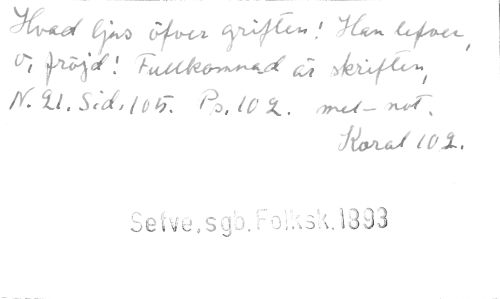 Hvad ljus öfver griften! Han lefver,
o, fröjd! Fullkomnad är skriften,
N. 21. Sid. 105. Ps. 102. mel-not.
Koral 102.
Sefve, sgb. Folksk. 1893